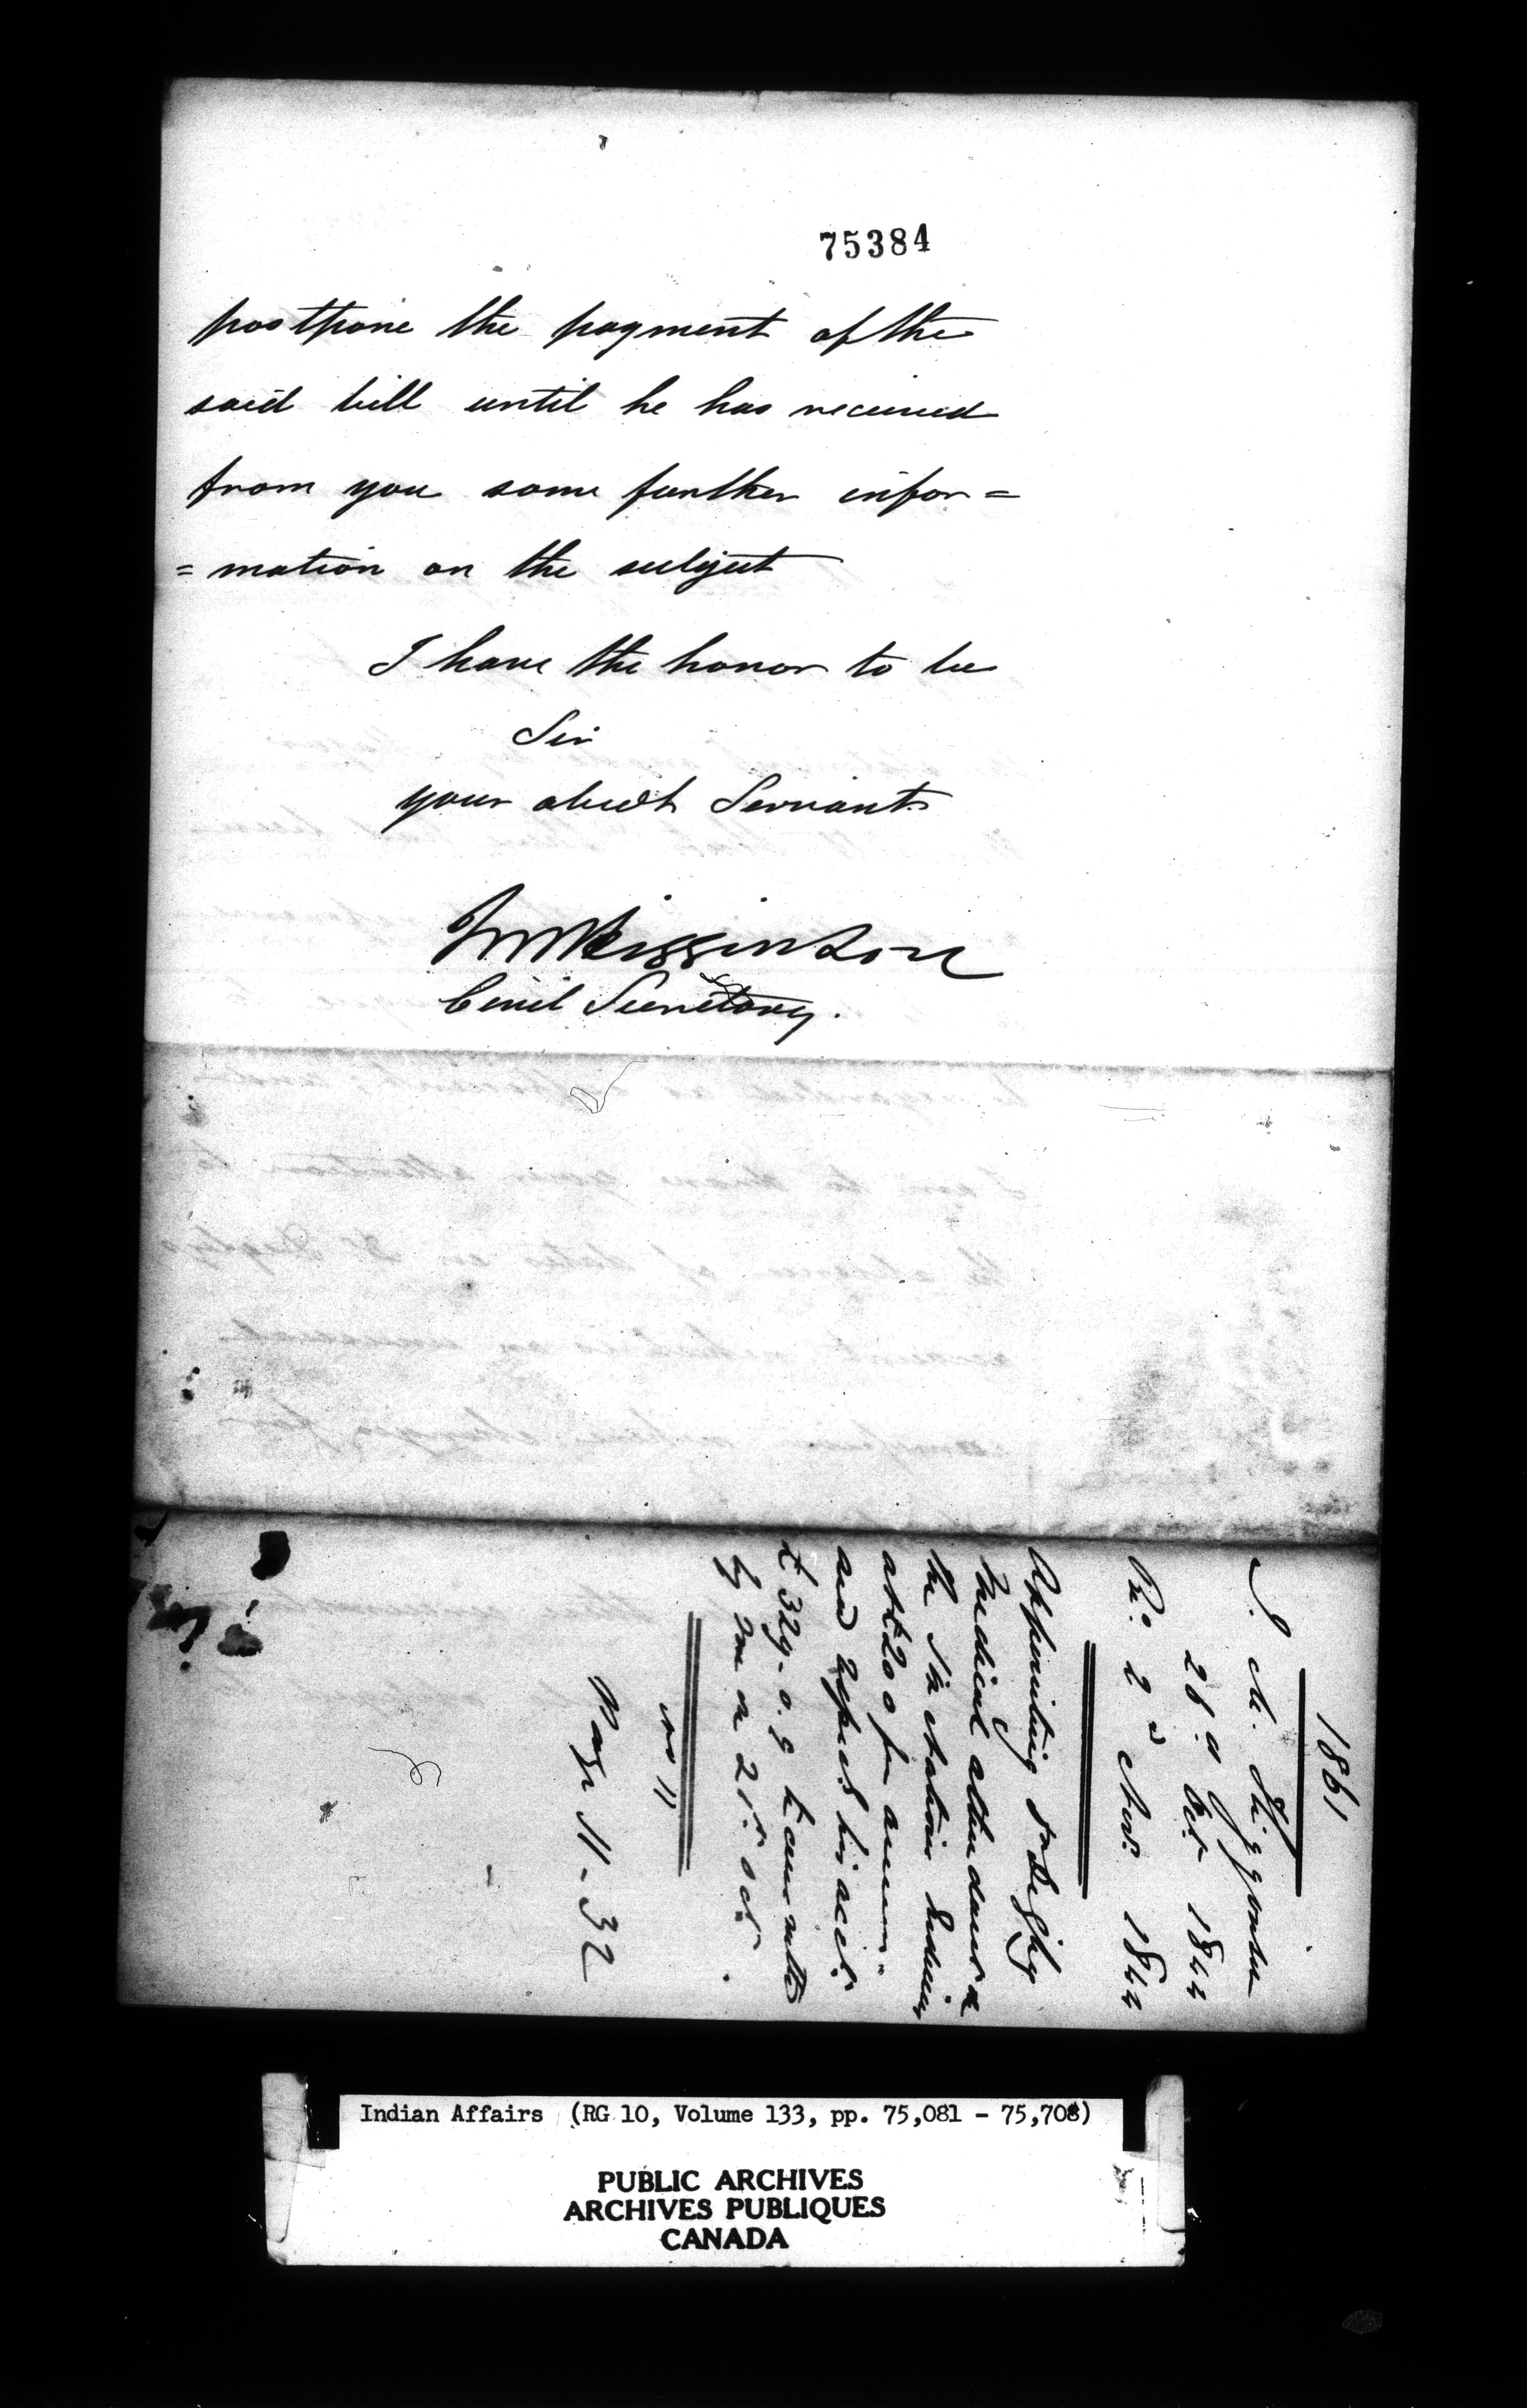 75384
postpone the payment of the
said bill until he has received
from you some further infor=
=mation on the subject
I have the honor to be
Sir
your obedt Servant
JM Higginson
Civil Secretary.
1861
J. M. Higginson
28th Oct 1844
Rd. 2d Nov. 1844
Appointing Dr Digby
Medical attendant on
the Six Nation Indians
at £200 per annum
and respects his acct.
£329.0.9 transmitted
by me on 25th Oct.
Page 11-32
Indian Affairs (RG 10, Volume 133, pp. 75,081 - 75,708)
PUBLIC ARCHIVES
ARCHIVES PUBLIQUES
CANADA